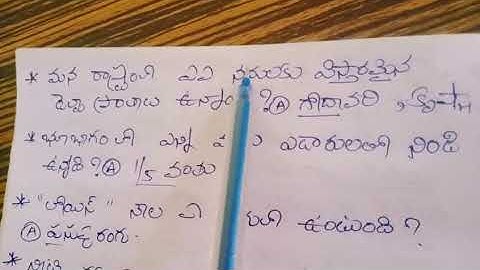 * మన రాష్ట్రంలో ఏఏ నదులకు విస్తారమైన
డెల్టా ప్రాంతాలు ఉన్నాయి ?Ⓐ గోదావరి, కృష్ణా
* భూభాగంలో ఎన్నో వ ఎడారులతో నిండి
ఉన్నది ?Ⓐ 1/5 వంతు
* " " నేల ఏ రంగులో ఉంటుంది ?
Ⓐ పసుపు రంగు.
*